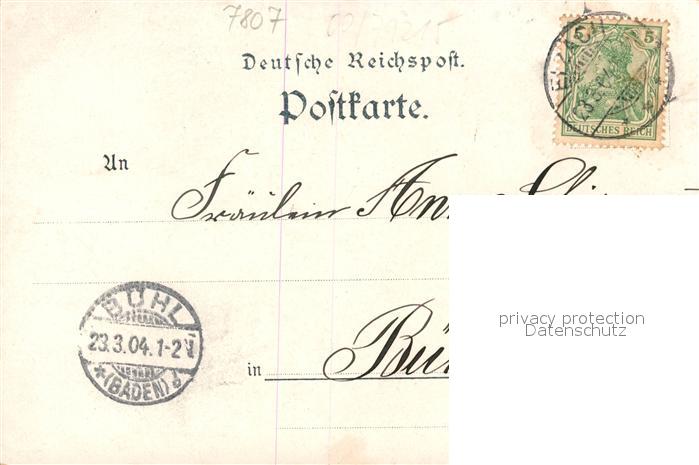 7807
Deutsche Reichspost.
Postkarte.
5 5
DEUTSCHES REICH
An
Fräulein
privacy protection
Datenschutz
BÜHL
23.3.04. 1-2 N
*(BADEN)
in